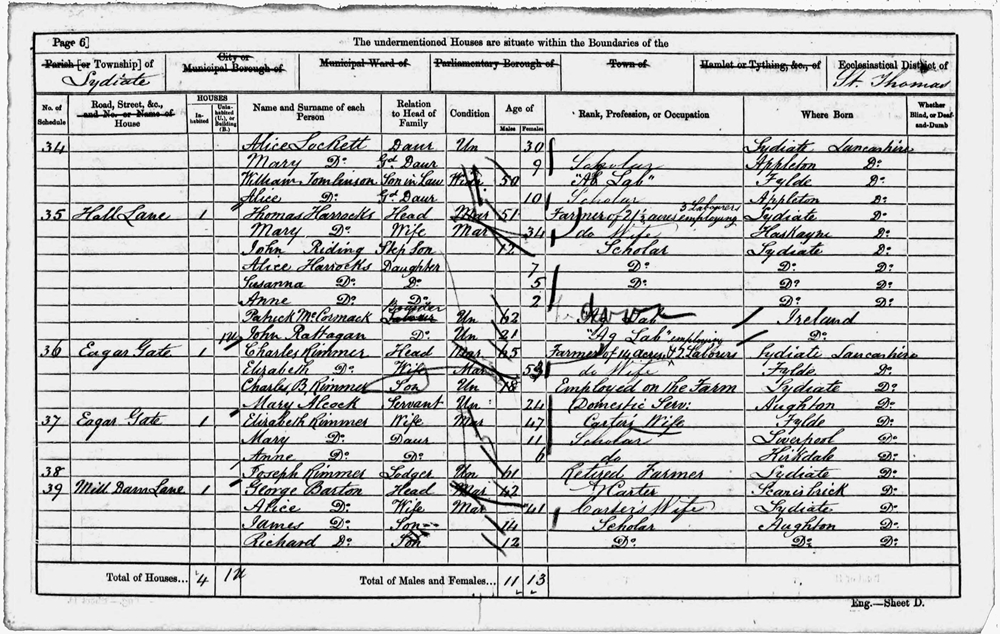 Page 6] The undermentioned Houses are situate within the Boundaries of the
Parish [or Township] of City or Municipal Borough of Municipal Ward of Parliamentary Borough of Town of Hamlet or Tything, &c., of Ecclesiastical District of
Lydiate St. Thomas
No. of Schedule Road, Street, &c., and No. or Name of House HOUSES Inhabited Uninhabited (U.), or Building (B.) Name and Surname of each Person Relation to Head of Family Condition Age of Males Females Rank, Profession, or Occupation Where Born Whether Blind, or Deaf-and-Dumb
34 Alice Lockett Daur Un 30 Lydiate Lancashire
Mary Do Gd Daur 9 Scholar Appleton Do
William Tomlinson Son in Law Widr 50 "Ab Lab" Fylde Do
Alice Do Gd Daur 10 Scholar Appleton Do
35 Hall Lane 1 Thomas Harrocks Head Mar 51 Farmer of 21½ acres employing 3 Labourers Lydiate Do
Mary Do Wife Mar 34 do Wife Haskayne Do
John Riding Step Son 12 Scholar Lydiate Do
Alice Harrocks Daughter 7 Do Do Do
Susanna Do Do 5 Do Do Do
Anne Do Do 2 Do Do
Patrick McCormack Boarder Un 62 Lab Ireland
1U John Rattagan Do Un 21 "Ag Lab" Do
36 Eagar Gate 1 Charles Rimmer Head Mar 65 Farmer of acres employing Labours Lydiate Lancashire
Elizabeth Do Wife Mar 53 do Wife Fylde Do
Charles B. Rimmer Son Un 18 Employed on the Farm Lydiate Do
Mary Alcock Servant Un 24 Domestic Serv: Aughton Do
37 Eagar Gate 1 Elizabeth Rimmer Wife Mar 47 Carter's Wife Fylde Do
Mary Do Daur 11 Scholar Liverpool Do
Anne Do Do 6 do Kirkdale Do
38 Joseph Rimmer Lodger Un 61 Retired Farmer Lydiate Do
39 Mill Dam Lane 1 George Barton Head Mar 42 Carter Scarisbrick Do
Alice Do Wife Mar 41 Carter's Wife Lydiate Do
James Do Son 14 Scholar Aughton Do
Richard Do Son 12 Do Do Do
Total of Houses... 4 1U Total of Males and Females... 11 13
Eng.—Sheet D.